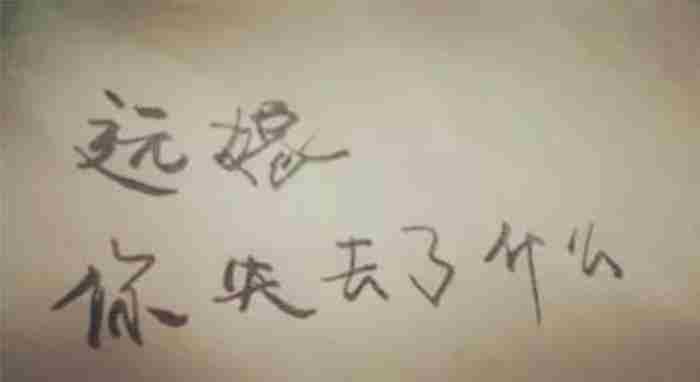 远嫁
你失去了什么